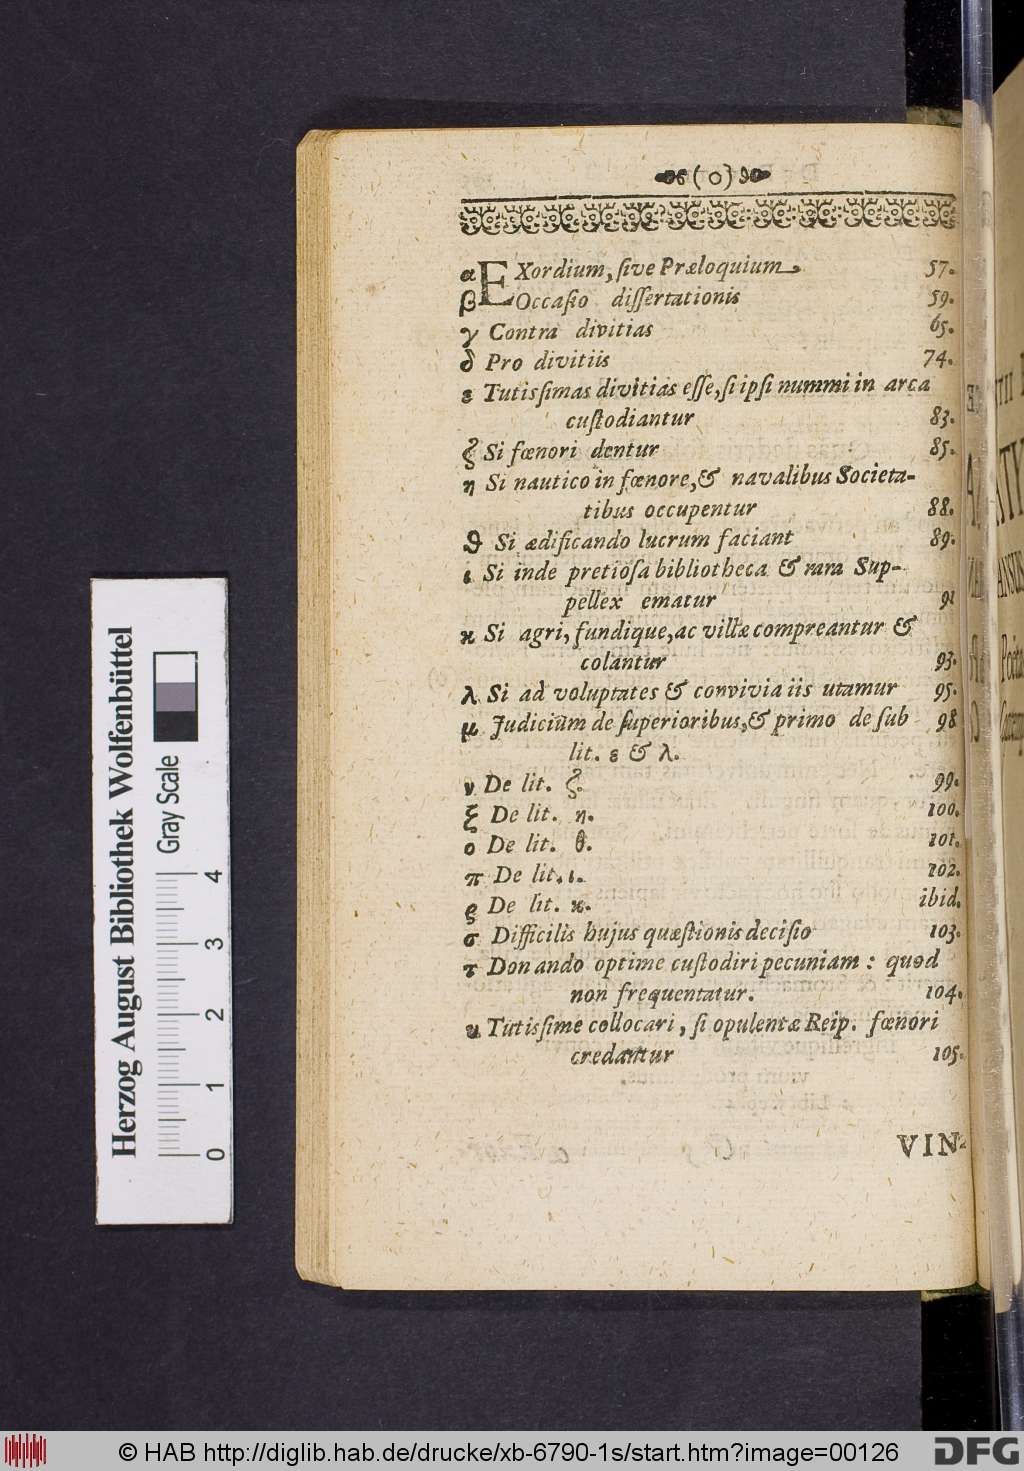 (o)
α EXordium, ſive Præloquium 57.
β Occaſio diſſertationis 59.
γ Contra divitias 65.
δ Pro divitiis 74.
ε Tutisſimas divitias eſſe, ſi ipſi nummi in arca
cuſtodiantur 83.
ζ Si fœnori dentur 85.
η Si nautico in fœnore, & navalibus Societa-
tibus occupentur 88.
ϑ Si ædificando lucrum faciant 89.
ι Si inde pretioſa bibliotheca & rara Sup-
pellex ematur 91
ϰ Si agri, fundique, ac villæ compreantur &
colantur 93.
λ Si ad voluptates & convivia iis utamur 95.
μ Judiciũm de ſuperioribus, & primo de ſub 98
lit. ε & λ.
ν De lit. ζ. 99.
ξ De lit. η. 100.
ο De lit. θ. 101.
π De lit. ι. 102.
ϱ De lit. ϰ. ibid.
σ Difficilis hujus quæſtionis deciſio 103.
τ Donando optime cuſtodiri pecuniam : quod
non frequentatur. 104.
υ Tutisſime collocari, ſi opulentæ Reip. fœnori
credantur 105.
VIN-
Herzog August Bibliothek Wolfenbüttel
Gray Scale
0 1 2 3 4
© HAB http://diglib.hab.de/drucke/xb-6790-1s/start.htm?image=00126
DFG